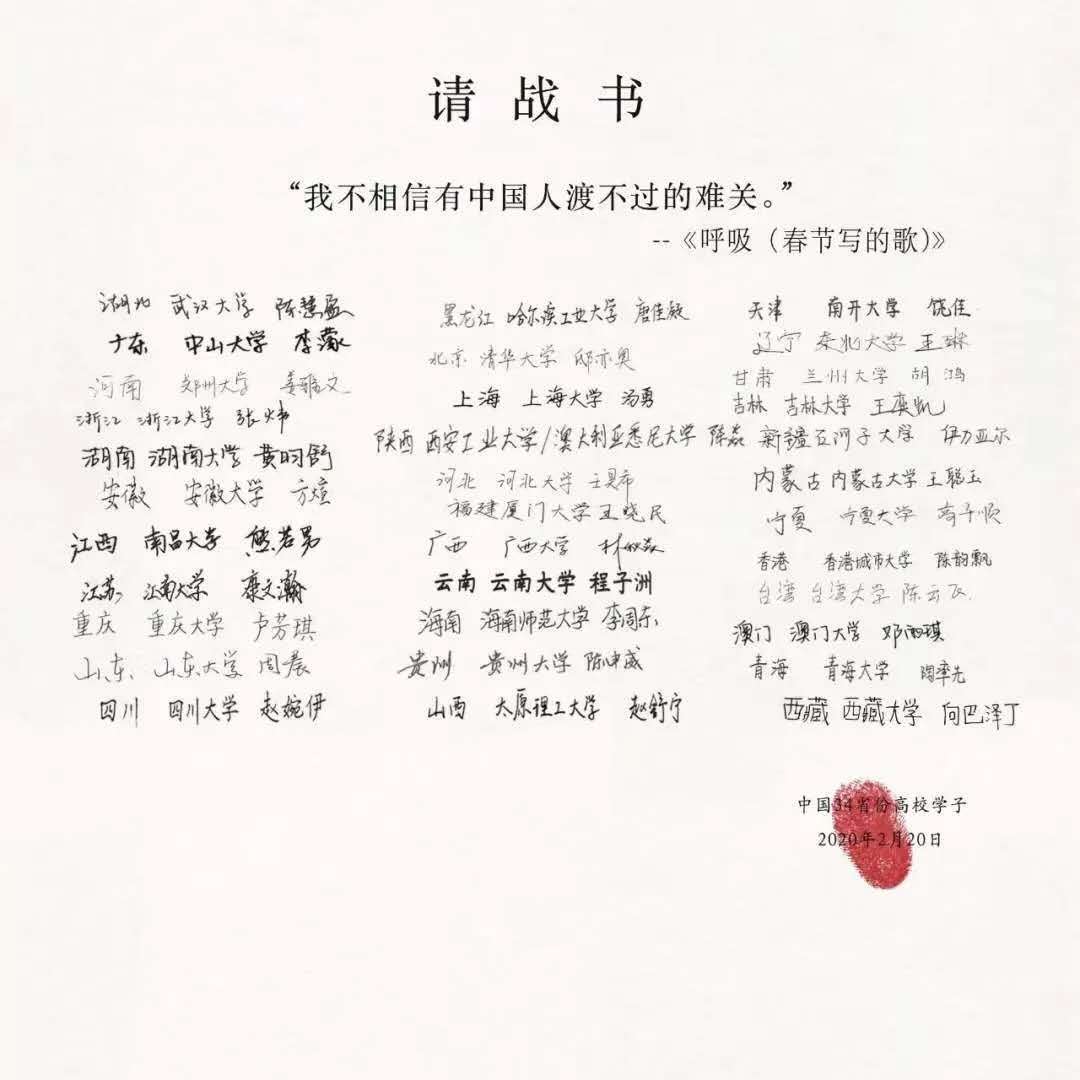 请战书
“我不相信有中国人渡不过的难关。”
--《呼吸（春节写的歌）》
湖北 武汉大学 陈慧盈
广东 中山大学 李濛
河南 郑州大学 姜雅文
浙江 浙江大学 张炜
湖南 湖南大学 黄昀舒
安徽 安徽大学 方煊
江西 南昌大学 熊若男
江苏 江南大学 康文瀚
重庆 重庆大学 卢芳琪
山东 山东大学 周晨
四川 四川大学 赵婉伊
黑龙江 哈尔滨工业大学 唐佳敏
北京 清华大学 邸亦奥
上海 上海大学 汤勇
陕西 西安工业大学/澳大利亚悉尼大学 陈焱
河北 河北大学
福建厦门大学王晓民
广西 广西大学
云南 云南大学 程子洲
海南 海南师范大学 李周东
贵州 贵州大学 陈申威
山西 太原理工大学 赵舒宁
天津 南开大学 饶佳
辽宁 东北大学 王琳
甘肃 兰州大学 胡鸿
吉林 吉林大学 王奕凯
新疆石河子大学 伊力亚尔
内蒙古 内蒙古大学 王聪玉
宁夏 宁夏大学 高子顺
香港 香港城市大学 陈韵飘
台湾 台湾大学 陈云飞
澳门 澳门大学 邓雨琪
青海 青海大学 陶率先
西藏 西藏大学 向巴泽丁
中国34省份高校学子
2020年2月20日